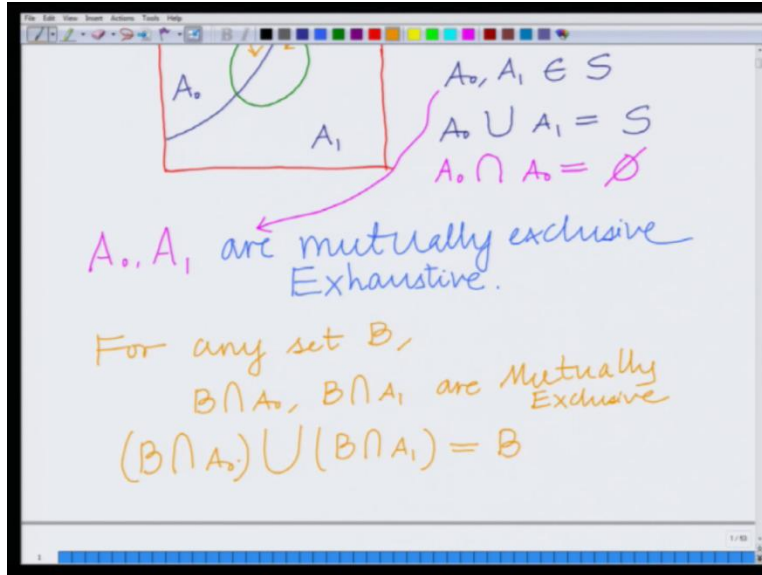 File Edit View Insert Actions Tools Help
A₀
A₁
A₀, A₁ ∈ S
A₀ ∪ A₁ = S
A₀ ∩ A₀ = ∅
A₀, A₁ are mutually exclusive
Exhaustive.
For any set B,
B∩A₀, B∩A₁ are Mutually
Exclusive
(B∩A₀) ∪ (B∩A₁) = B
1